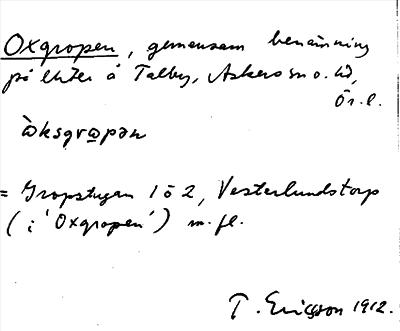 Oxgropen, gemensam benämning
på lhter å Talby, Askers sn o. hd,
Ör. l.
ὼksgrωpən
= Gropstugan 1 o 2, Vesterlundstorp
( i 'Oxgropen' ) m. fl.
T. Ericsson 1912.